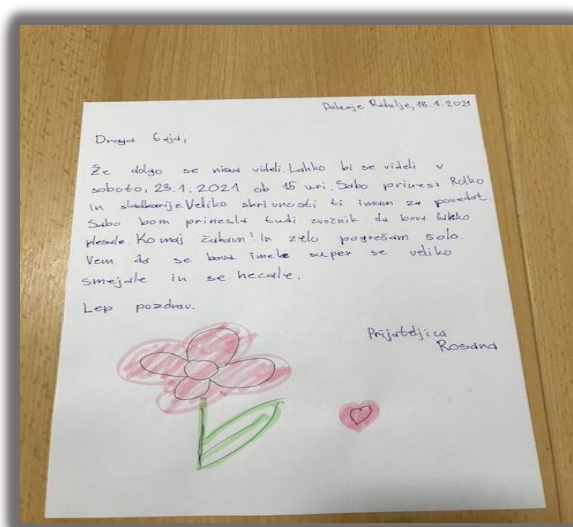 Dolenje Radulje, 18.1.2021
Draga Gaja,
Že dolgo se nisva videli. Lahko bi se videli v
soboto, 23.1.2021 ob 15 uri. Sabo prinesi Rolko
in sladkarije. Veliko skrivnosti ti imam za povedat.
Sabo bom prinesla tudi zvočnik da bova lahko
plesale. Komaj čakam! In zelo pogrešam šolo.
Vem da se bova imele super se veliko
smejale in se hecale.
Lep pozdrav.
Prijateljica
Rosana